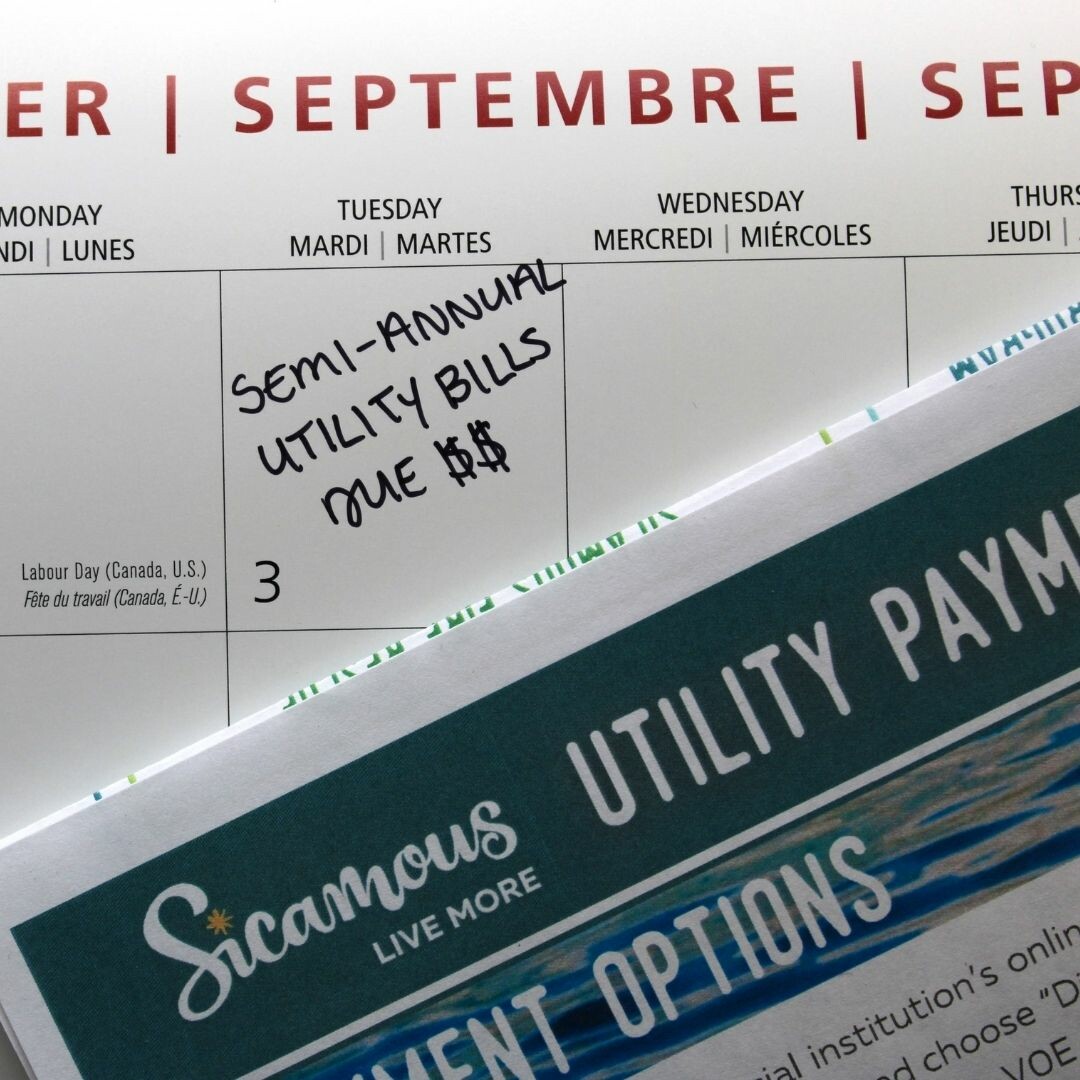 ER | SEPTEMBRE | SEP
MONDAY
NDI | LUNES
TUESDAY
MARDI | MARTES
WEDNESDAY
MERCREDI | MIÉRCOLES
THURS
JEUDI |
SEMI-ANNUAL
UTILITY BILLS
DUE $$
Labour Day (Canada, U.S.)
Fête du travail (Canada, É.-U.)
3
Sicamous
LIVE MORE
UTILITY PAYM
MENT OPTIONS
ial institution's onlin
nd choose "Di
VOE